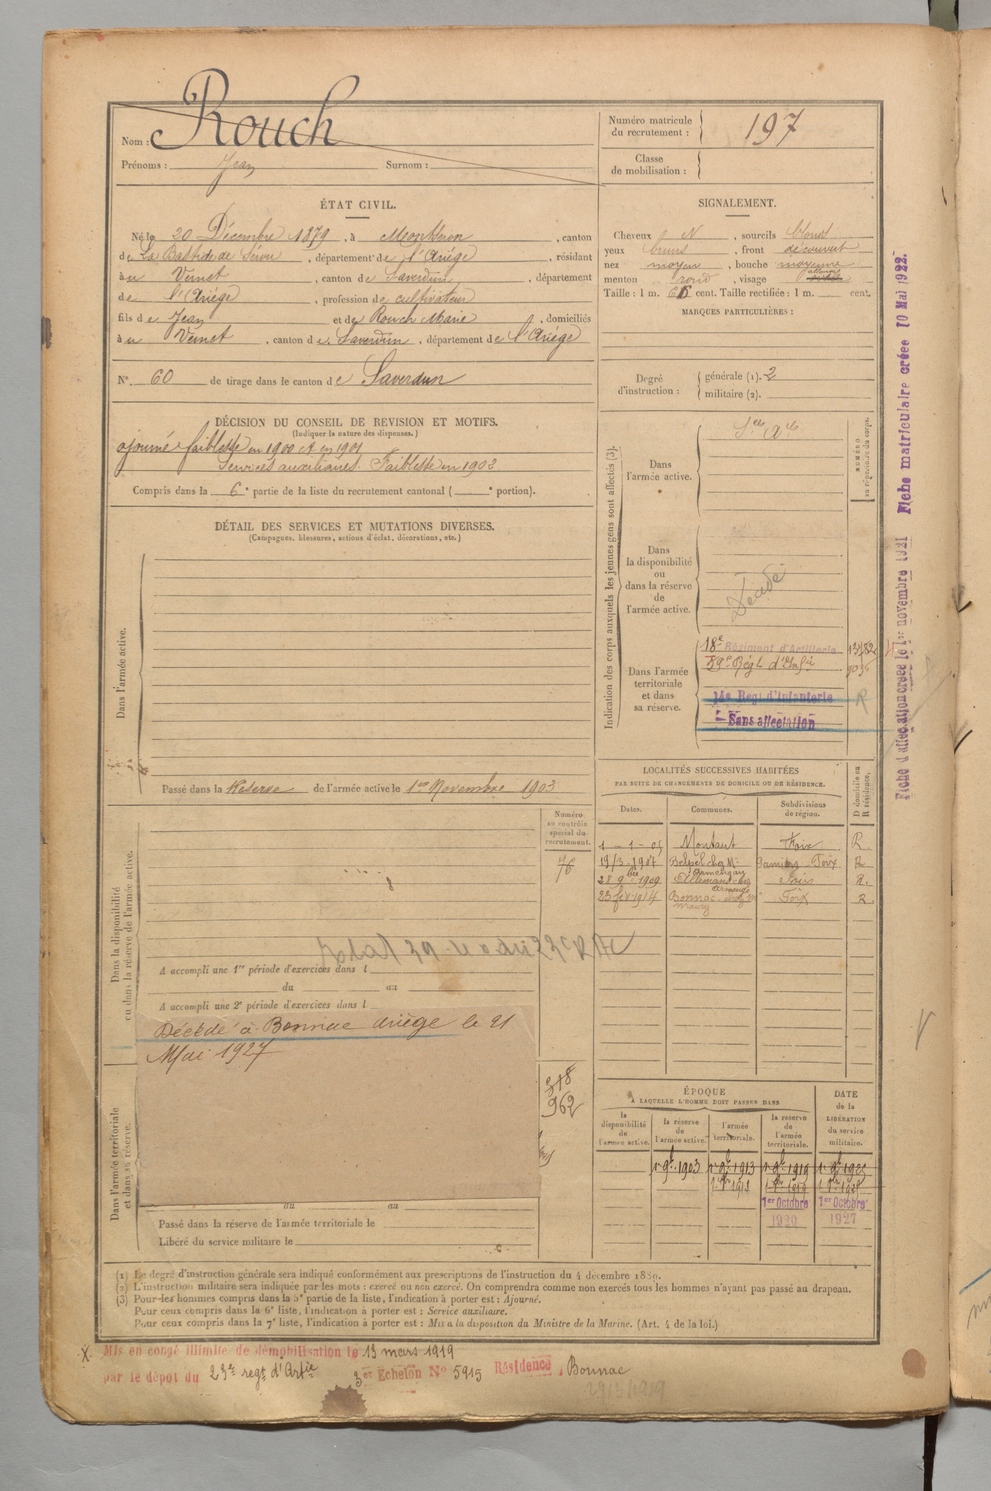 Nom : Rouch
Prénoms : Jean Surnom :
Numéro matricule du recrutement : 197
Classe de mobilisation :
ÉTAT CIVIL.
Né le 20 Décembre 1879, à Montséron, canton
de La Bastide de Sérou, département de l'Ariège, résidant
à u Vernet, canton de Saverdun, département
de l'Ariège, profession de cultivateur
fils de Jean et de Rouch Marie, domiciliés
à u Vernet, canton de Saverdun, département de l'Ariège
N° 60 de tirage dans le canton de Saverdun
SIGNALEMENT.
Cheveux N, sourcils blonds
yeux bruns, front découvert
nez moyen, bouche moyenne
menton rond, visage allongé
Taille : 1 m. 66 cent. Taille rectifiée : 1 m. cent.
MARQUES PARTICULIÈRES :
Degré d'instruction : générale (1). 2
militaire (2).
DÉCISION DU CONSEIL DE REVISION ET MOTIFS.
(Indiquer la nature des dispenses.)
ajourné faiblesse en 1900 et en 1901
Services auxiliaires. Faiblesse en 1902
Compris dans la 6e partie de la liste du recrutement cantonal ( e portion).
DÉTAIL DES SERVICES ET MUTATIONS DIVERSES.
(Campagnes, blessures, actions d'éclat, décorations, etc.)
Dans l'armée active.
Passé dans la Réserve de l'armée active le 1er Novembre 1903
Indication des corps auxquels les jeunes gens sont affectés (3).
NUMÉRO au répertoire du corps.
Dans l'armée active.
Dans la disponibilité ou dans la réserve de l'armée active.
Décédé
Dans l'armée territoriale et dans sa réserve.
18e Régiment d'Artillerie
Régt d'Infie
14e Régt d'Infanterie
Sans affectation
R
Fiche d'affectation créée le 1er novembre 1921 Fiche matriculaire créée 10 Mai 1922.
LOCALITÉS SUCCESSIVES HABITÉES
PAR SUITE DE CHANGEMENTS DE DOMICILE OU DE RÉSIDENCE.
D domicile ou R résidence.
Dates. Communes. Subdivisions de région.
1-1-05 Montaut Foix R.
19/3 1907 Pamiers Foix R
28 9bre 1909 R.
23 fév 1914 Bonnac Foix R
Dans la disponibilité ou dans la réserve de l'armée active.
Numéro au contrôle spécial du recrutement.
76
A accompli une 1re période d'exercices dans l
du au
A accompli une 2e période d'exercices dans l
Décédé à Bonnac Ariège le 21
Mai 1927
Dans l'armée territoriale et dans sa réserve.
962
au au
Passé dans la réserve de l'armée territoriale le
Libéré du service militaire le
ÉPOQUE
A LAQUELLE L'HOMME DOIT PASSER DANS
DATE de la LIBÉRATION du service militaire.
la disponibilité de l'armée active. la réserve de l'armée active. l'armée territoriale. la réserve de l'armée territoriale.
1 9bre 1903 1 9bre 1913 1 9bre 1919 1 9bre 1925
1er Octobre 1920 1er Octobre 1927
(1) Le degré d'instruction générale sera indiqué conformément aux prescriptions de l'instruction du 4 décembre 1889.
(2) L'instruction militaire sera indiquée par les mots : exercé ou non exercé. On comprendra comme non exercés tous les hommes n'ayant pas passé au drapeau.
(3) Pour les hommes compris dans la 5e partie de la liste, l'indication à porter est : Ajourné.
Pour ceux compris dans la 6e liste, l'indication à porter est : Service auxiliaire.
Pour ceux compris dans la 7e liste, l'indication à porter est : Mis à la disposition du Ministre de la Marine. (Art. 4 de la loi.)
Mis en congé illimité de démobilisation le 13 mars 1919
par le dépôt du 23e regt d'Artie 3er Echelon N° 5915 Résidence, Bonnac